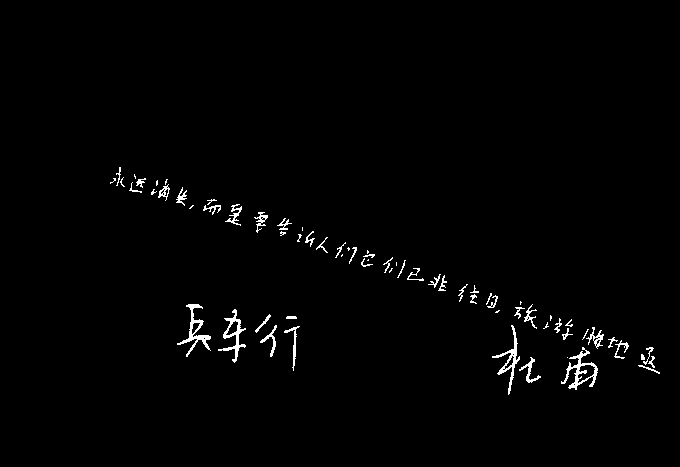 永远消失,而是要告诉人们它们已非往日,旅游胜地亟
兵车行
杜甫